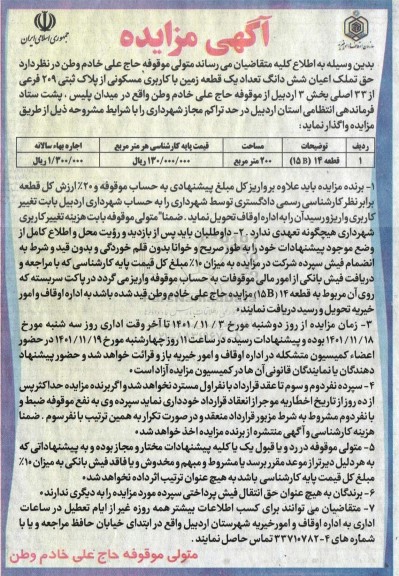 جمهوری اسلامی ایران
آگهی مزایده
بدین وسیله به اطلاع کلیه متقاضیان می رساند متولی موقوفه حاج علی خادم وطن در نظر دارد
حق تملک اعیان شش دانگ تعداد یک قطعه زمین با کاربری مسکونی از پلاک ثبتی ۲۰۹ فرعی
از ۳۳ اصلی بخش ۳ اردبیل از موقوفه حاج علی خادم وطن واقع در میدان پلیس ، پشت ستاد
فرماندهی انتظامی استان اردبیل در حد تراکم مجاز شهرداری را با شرایط مشروحه ذیل از طریق
مزایده واگذار نماید:
ردیف توضیحات مساحت قیمت پایه کارشناسی هر متر مربع اجاره بهاء سالانه
۱ قطعه ۱۴ (۱۵B) ۲۰۰ متر مربع ۱۳۰/۰۰۰/۰۰۰ ریال ۱/۳۰۰/۰۰۰ ریال
۱- برنده مزایده باید علاوه بر واریز کل مبلغ پیشنهادی به حساب موقوفه و ۲۰٪ ارزش کل قطعه
برابر نظر کارشناسی رسمی دادگستری توسط شهرداری را به حساب شهرداری اردبیل بابت تغییر
کاربری واریز و رسید آن را به اداره اوقاف تحویل نماید . ضمنا" متولی موقوفه بابت هزینه تغییر کاربری
شهرداری هیچگونه تعهدی ندارد . ۲- داوطلبان باید پس از بازدید و رؤیت محل و اطلاع کامل از
وضع موجود پیشنهادات خود را به طور صریح و خوانا بدون قلم خوردگی و بدون قید و شرط به
انضمام فیش سپرده شرکت در مزایده به میزان ۱۰٪ مبلغ کل قیمت پایه کارشناسی که با مراجعه و
دریافت فیش بانکی از امور مالی موقوفات به حساب موقوفه واریز می گردد در پاکت سربسته که
روی آن مربوط به قطعه ۱۴ (۱۵B) مزایده حاج علی خادم وطن قید شده باشد به اداره اوقاف و امور
خیریه تحویل و رسید دریافت نمایند.
۳- زمان مزایده از روز دوشنبه مورخ ۱۴۰۱/۱۱/۳ تا آخر وقت اداری روز سه شنبه مورخ
۱۴۰۱/۱۱/۱۸ بوده و پیشنهادات رسیده در ساعت ۱۱ روز چهارشنبه مورخ ۱۴۰۱/۱۱/۱۹ در حضور
اعضاء کمیسیون متشکله در اداره اوقاف و امور خیریه باز و قرائت خواهد شد و حضور پیشنهاد
دهندگان یا نمایندگان قانونی آن ها در کمیسیون مزایده آزاد است
۴- سپرده نفر دوم و سوم تا عقد قرارداد با نفر اول مسترد نخواهد شد و اگر برنده مزایده حداکثر پس
از ده روز از تاریخ اخطاریه موجر از انعقاد قرارداد خودداری نماید سپرده وی به نفع موقوفه ضبط و
با نفر دوم مشروط به شرط مزبور قرارداد منعقد و در صورت تکرار به همین ترتیب با نفر سوم . ضمنا
هزینه کارشناسی و آگهی منتشره از برنده مزایده اخذ خواهد شد
۵- متولی موقوفه در رد و یا قبول یک یا کلیه پیشنهادات مختار و مجاز بوده و به پیشنهاداتی که
به هر دلیل دیرتر از موعد مقرر برسد یا مشروط و مبهم و مخدوش و یا فاقد فیش بانکی به میزان ۱۰٪
مبلغ کل قیمت پایه کارشناسی باشد به هیچ عنوان ترتیب اثر داده نخواهد شد
۶- برندگان به هیچ عنوان حق انتقال فیش پرداختی سپرده مورد مزایده را به دیگری ندارند.
۷- متقاضیان می توانند برای کسب اطلاعات بیشتر همه روزه غیر از ایام تعطیل در ساعات
اداری به اداره اوقاف و امور خیریه شهرستان اردبیل واقع در ابتدای خیابان حافظ مراجعه و یا با
شماره های ۴-۳۳۷۱۰۷۸۲ تماس حاصل نمایند .
متولی موقوفه حاج علی خادم وطن